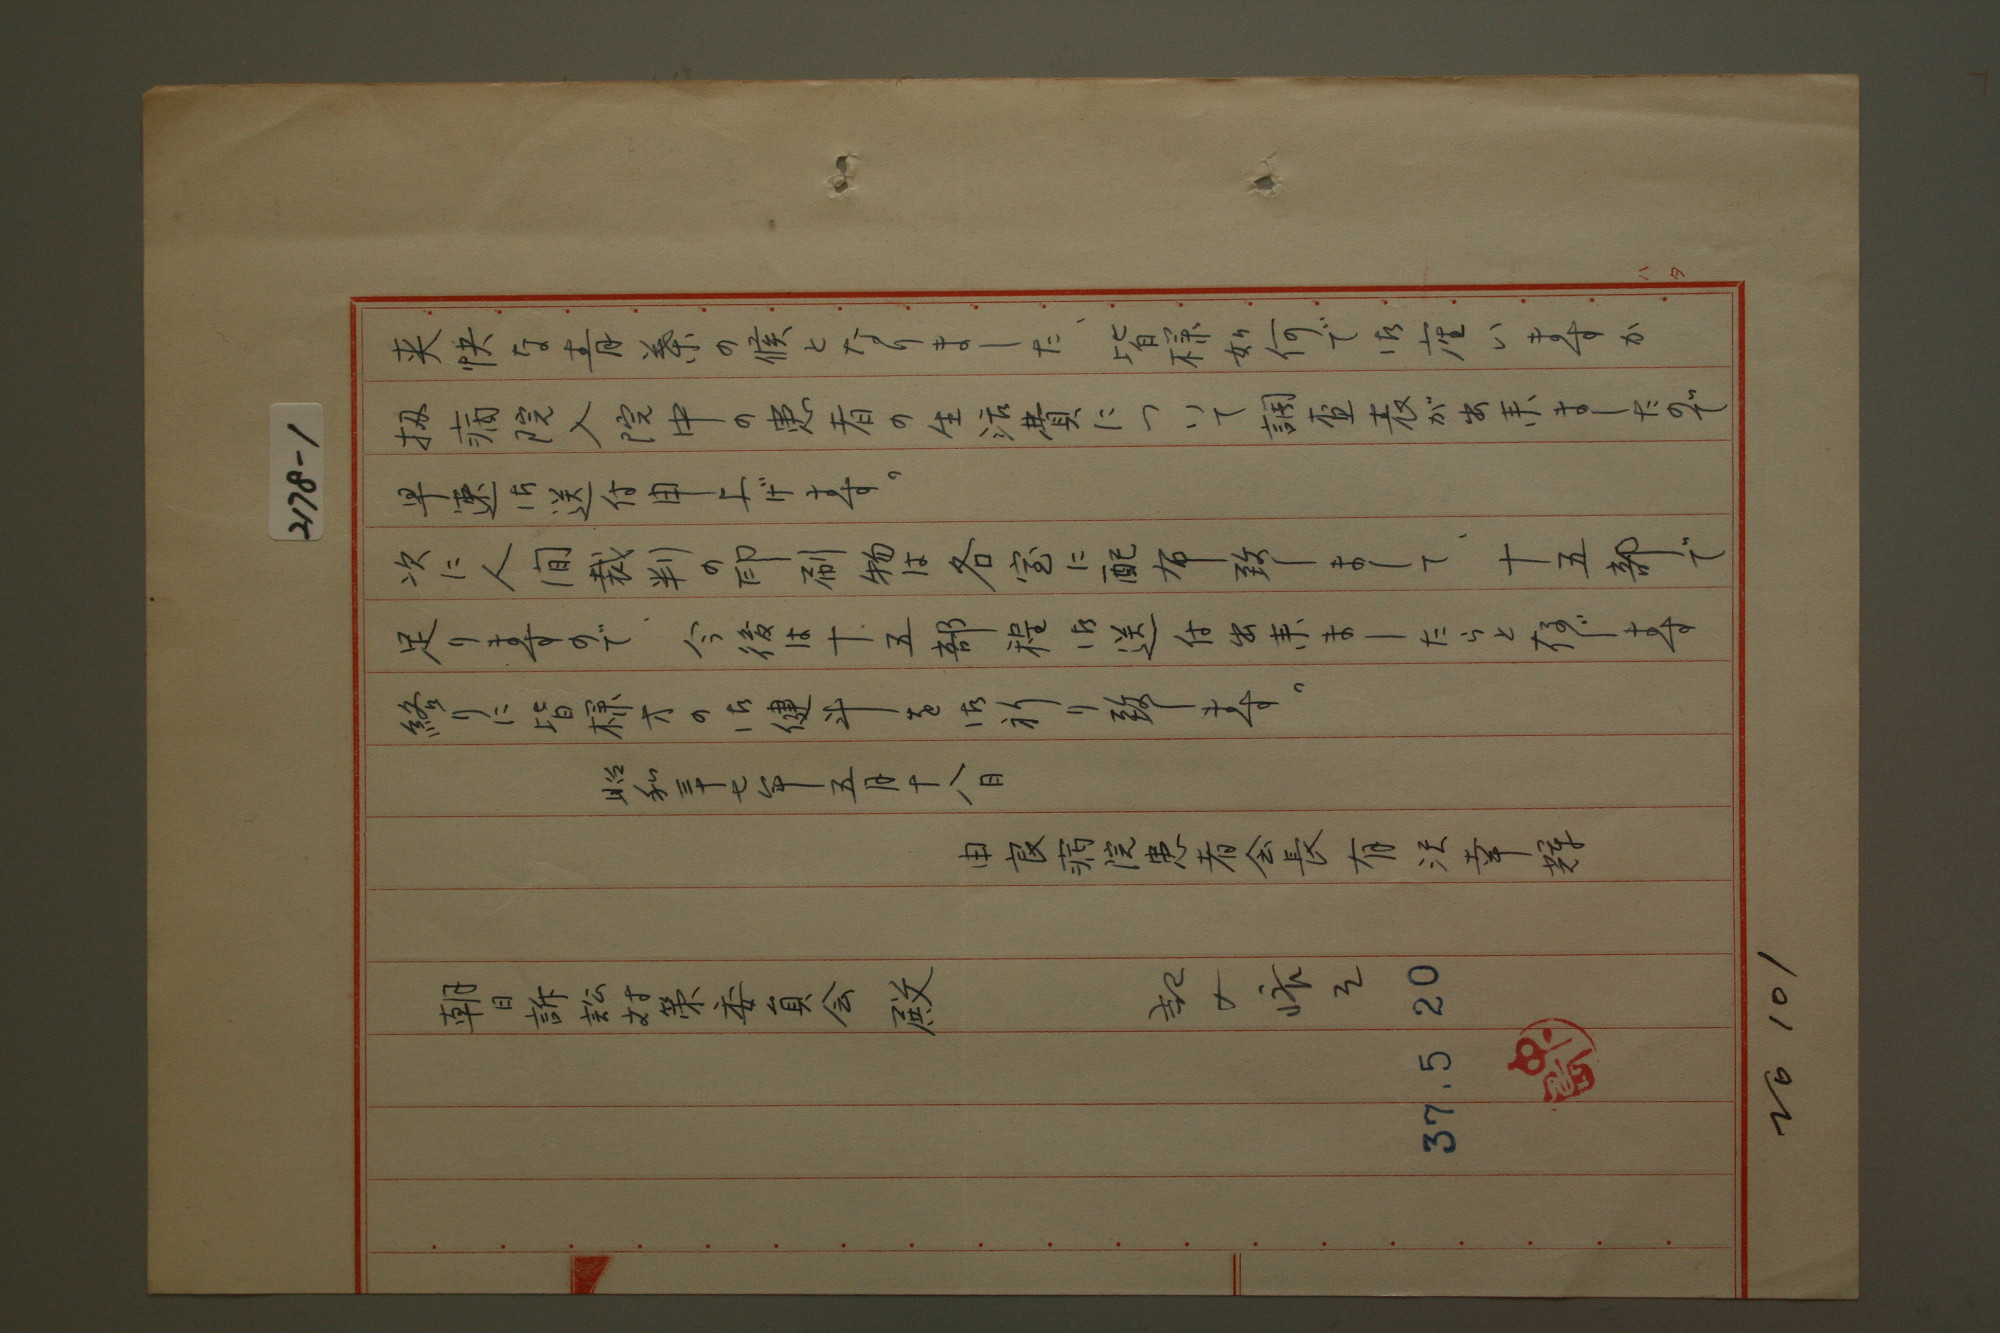 爽快な青葉の候となりました、皆様如何で御座いますか
扨病院入院中の患者の生活費について調査表が出来ましたので
早速御送付申し上げます。
次に人間裁判の印刷物は各室に配布致しまして、十五部で
足りますので、今後は十五部程御送付出来ましたらと存じます
終りに皆様方の御健斗を御祈り致します。
昭和三十七年五月十八日
由良病院患者会長有
朝日訴訟対策委員会殿
37.5 20
No 101
2178-1
ハタ